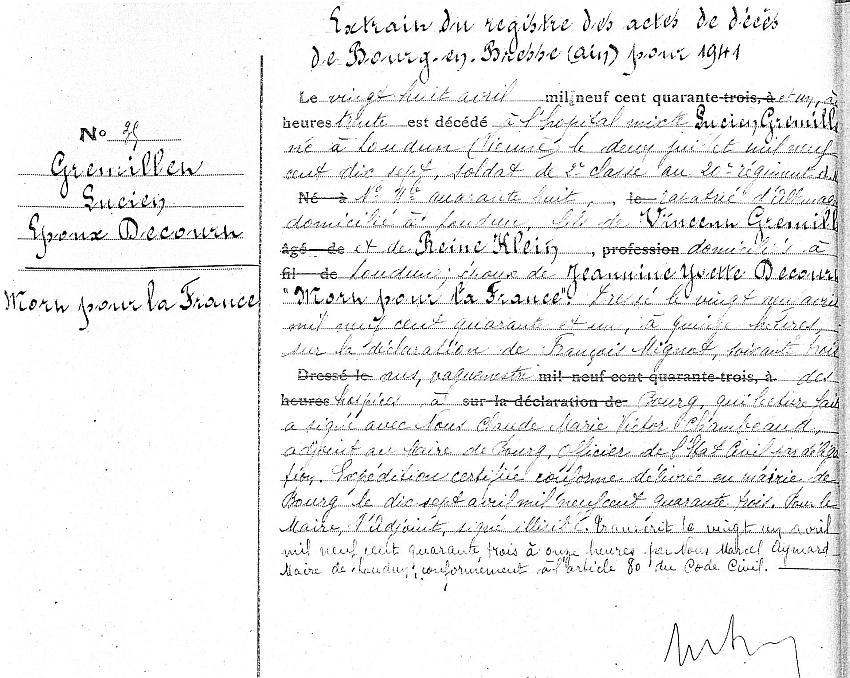 Extrait du registre des actes de décès
de Bourg-en-Bresse (ain) pour 1941
No 35
Gremillet
Lucien
Epoux Decourt
Mort pour la France
Le vingt huit avril mil neuf cent quarante-trois, à et un, à
heures trente est décédé à l'hopital mixte Lucien Gremill
né à Loudun (Vienne) le deux juillet mil neuf
cent dix sept, soldat de 2e classe au 20e régiment
Né à No quarante huit, , le rapatrié d'Allemag
domicilié à Loudun, fils de Vincent Gremill
âgé de et de Reine Klein , profession domiciliés à
fil de Loudun; époux de Jeannine Yvette Decour
"Mort pour la France". Dressé le vingt neuf avril
mil neuf cent quarante et un, à quinze heures,
sur la déclaration de François Mignot, soixante trois
Dressé le ans, vaguemestre mil neuf cent quarante-trois, à des
heures hospices, à sur la déclaration de Bourg, qui lecture fait
a signé avec Nous Claude Marie Victor Chambeaud,
adjoint au Maire de Bourg, Officier de l'Etat Civil par déléga
tion. Expédition certifiée conforme délivrée en mairie de
Bourg le dix sept avril mil neuf cent quarante trois. Pour le
Maire, l'Adjoint, signé illisible. Transcrit le vingt un avril
mil neuf cent quarante trois à onze heures par Nous Marcel Aymard
Maire de Loudun, conformément à l'article 80 du Code Civil.